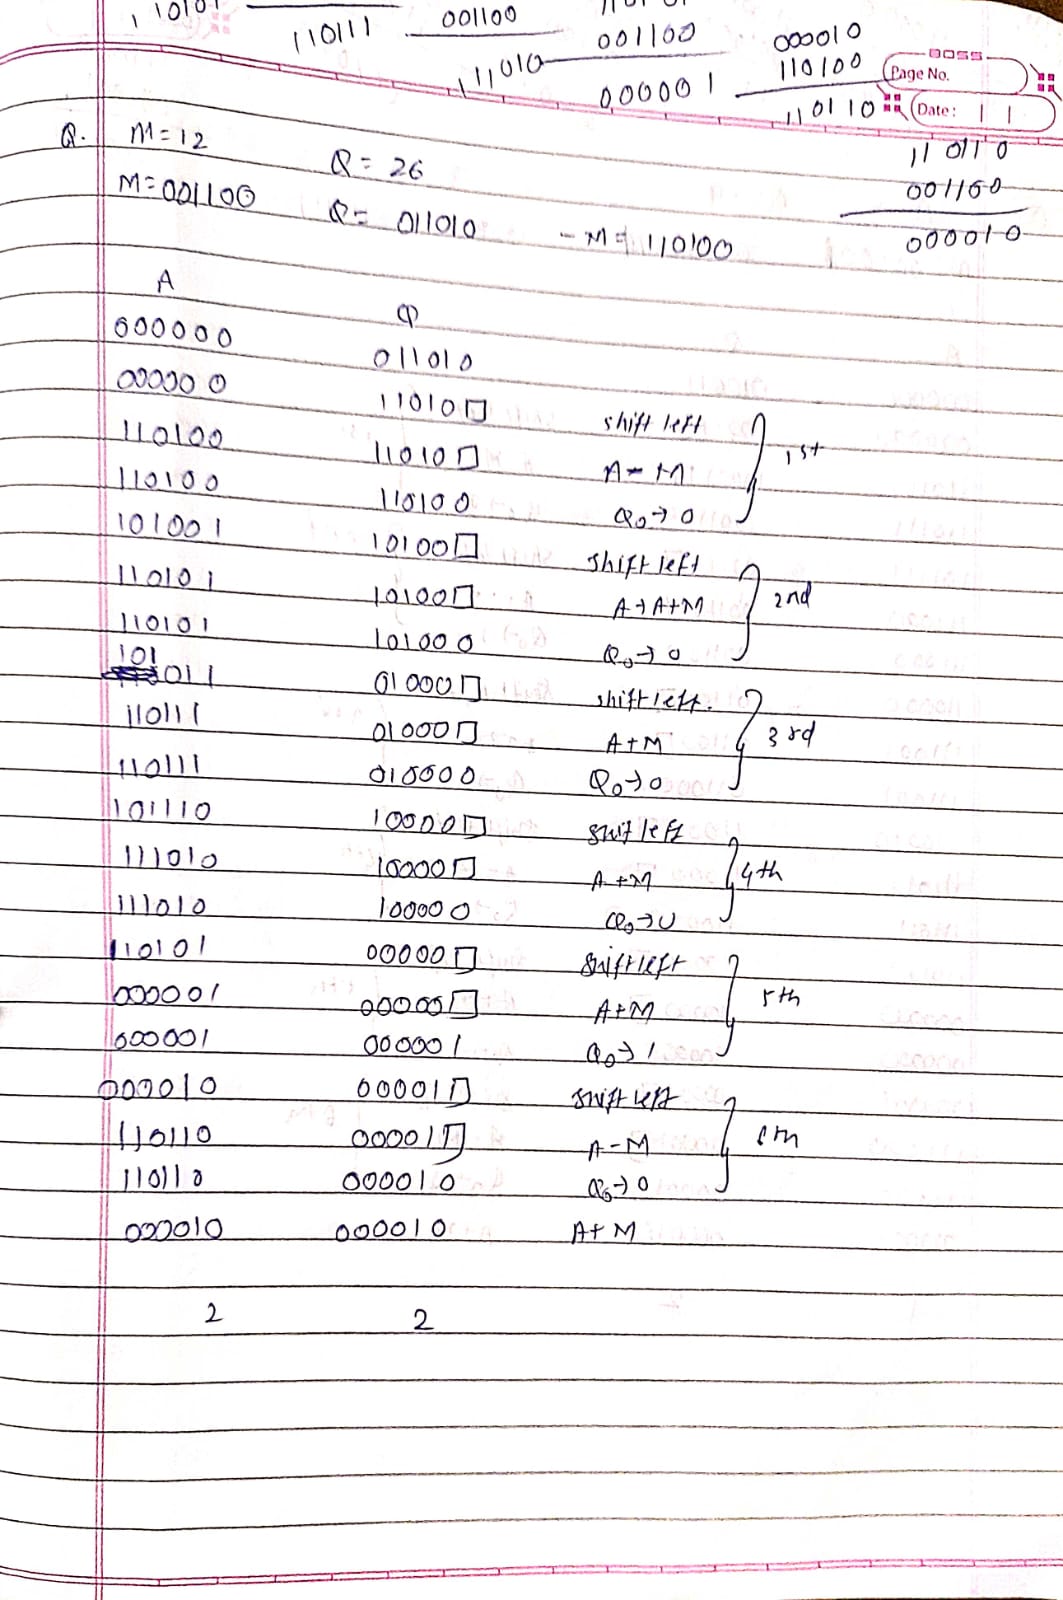 11010
110111
001100
111010
001100
000001
000010
110100
110110
BOSS
Page No.
Date:
Q. M=12 Q= 26
M=001100 Q= 011010 -M= 110100
110110
001100
000010
A Q
000000 011010
000000 11010□ shift left
110100 11010□ A-M 1st
110100 110100 Q₀→0
101001 10100□ shift left
110101 10100□ A→A+M 2nd
110101 101000 Q₀→0
101011 01000□ shift left.
110111 01000□ A+M 3rd
110111 010000 Q₀→0
101110 10000□ shif left
111010 10000□ A+M 4th
111010 100000 Q₀→0
110101 00000□ shift left
000001 00000□ A+M 5th
000001 000001 Q₀→1
000010 00001□ shift left
110110 00001□ A-M 6th
110110 000010 Q₀→0
000010 000010 A+M
2 2